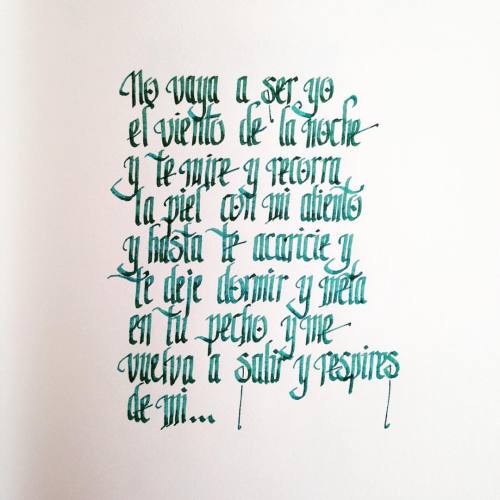 No vaya a ser yo
el viento de la noche
y te mire y recorra
la piel con mi aliento
y hasta te acaricie y
te deje dormir y meta
en tu pecho y me
vuelva a salir y respires
de mi...